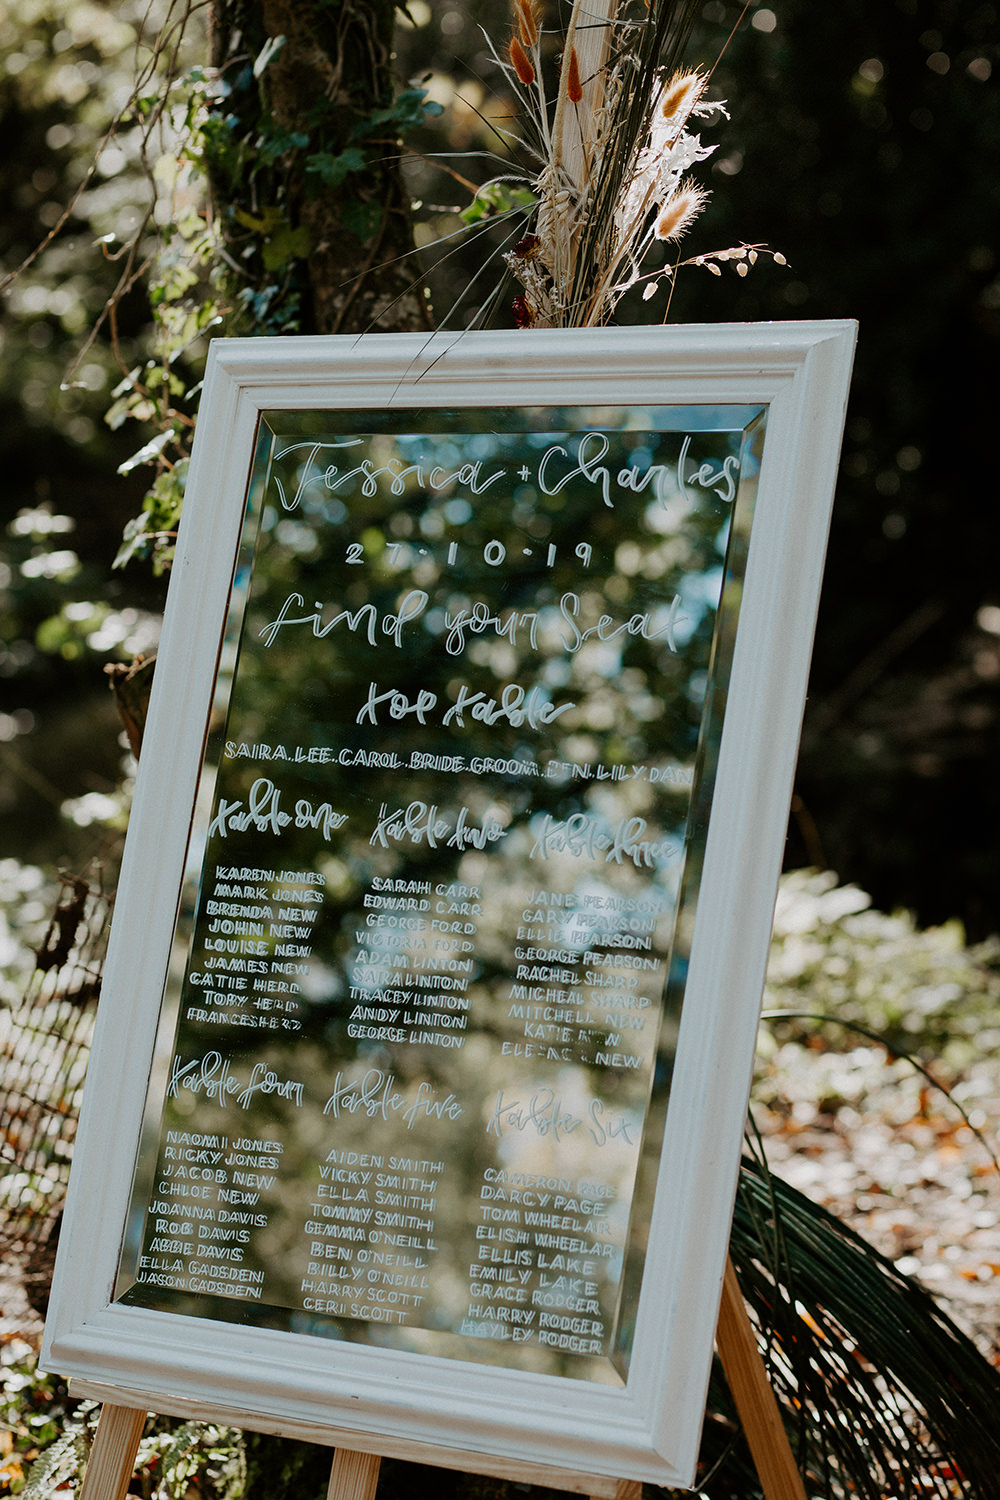 Jessica + Charles
27·10·19
find your Seat
top table
SAIRA. LEE. CAROL. BRIDE. GROOM. BEN. LILY. DAN
table one
KAREN JONES
MARK JONES
BRENDA NEW
JOHN NEW
LOUISE NEW
JAMES NEW
CATIE HERD
TOBY HERD
FRANCES HERD
table two
SARAH CARR
EDWARD CARR
GEORGE FORD
VICTORIA FORD
ADAM LINTON
SARA LINTON
TRACEY LINTON
ANDY LINTON
GEORGE LINTON
table three
JANE PEARSON
GARY PEARSON
ELLIE PEARSON
GEORGE PEARSON
RACHEL SHARP
MICHEAL SHARP
MITCHELL NEW
KATIE NEW
NEW
table four
NAOMI JONES
RICKY JONES
JACOB NEW
CHLOE NEW
JOANNA DAVIS
ROB DAVIS
ABBIE DAVIS
ELLA GADSDEN
JASON GADSDEN
table five
AIDEN SMITH
VICKY SMITH
ELLA SMITH
TOMMY SMITH
GEMMA O'NEILL
BEN O'NEILL
BILLY O'NEILL
HARRY SCOTT
CERI SCOTT
table Six
CAMERON PAGE
DARCY PAGE
TOM WHEELAR
ELISH WHEELAR
ELLIS LAKE
EMILY LAKE
GRACE RODGER
HARRY RODGER
HAYLEY RODGER